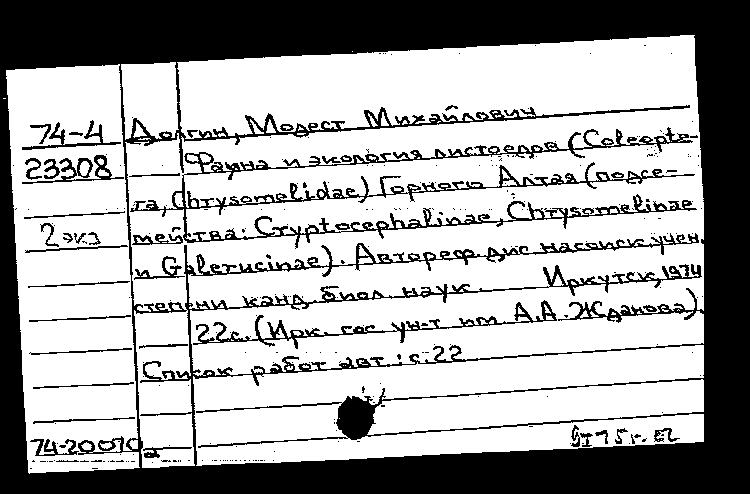 74-4 Долгин, Модест Михайлович
23308 Фауна и экология листоедов (Coleopte-
ra, Chrysomelidae) Горного Алтая (подсе-
2 экз мейства: Cryptocephalinae, Chrysomelinae
и Galerucinae). Автореф дис на соиск учен.
степени канд. биол. наук. Иркутск, 1974
22с. (Ирк. гос ун-т им А.А. Жданова).
Список работ авт: с. 22
74-20070а